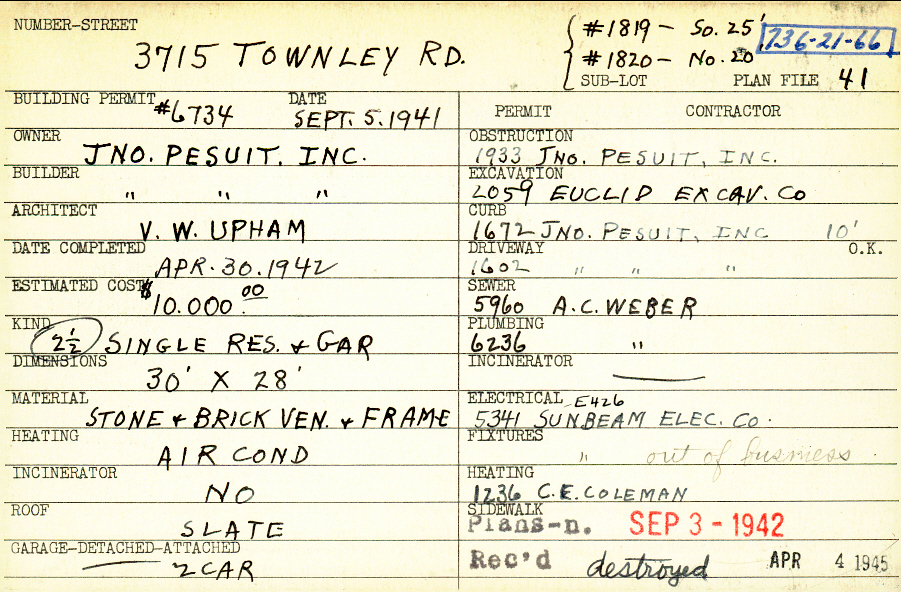 NUMBER-STREET
3715 TOWNLEY RD.
#1819 - So. 25'
#1820 - No. 20
736-21-66
SUB-LOT PLAN FILE 41
BUILDING PERMIT #6734 DATE SEPT. 5. 1941
PERMIT CONTRACTOR
OWNER
JNO. PESUIT. INC.
OBSTRUCTION
1933 JNO. PESUIT, INC.
BUILDER
" " "
EXCAVATION
2059 EUCLID EXCAV. CO
ARCHITECT
V. W. UPHAM
CURB
1672 JNO. PESUIT, INC 10'
DATE COMPLETED
APR. 30. 1942
DRIVEWAY O.K.
1602 " " "
ESTIMATED COST
$10.000.00
SEWER
5960 A.C. WEBER
KIND
2½ SINGLE RES. & GAR
PLUMBING
6236 "
DIMENSIONS
30' X 28'
INCINERATOR
MATERIAL
STONE & BRICK VEN. & FRAME
ELECTRICAL E426
5341 SUNBEAM ELEC. CO.
HEATING
AIR COND
FIXTURES
" out of busniess.
INCINERATOR
NO
HEATING
1236 C.E. COLEMAN
ROOF
SLATE
SIDEWALK
Plans-n. SEP 3 - 1942
GARAGE-DETACHED-ATTACHED
2 CAR
Rec'd destroyed APR 4 1945